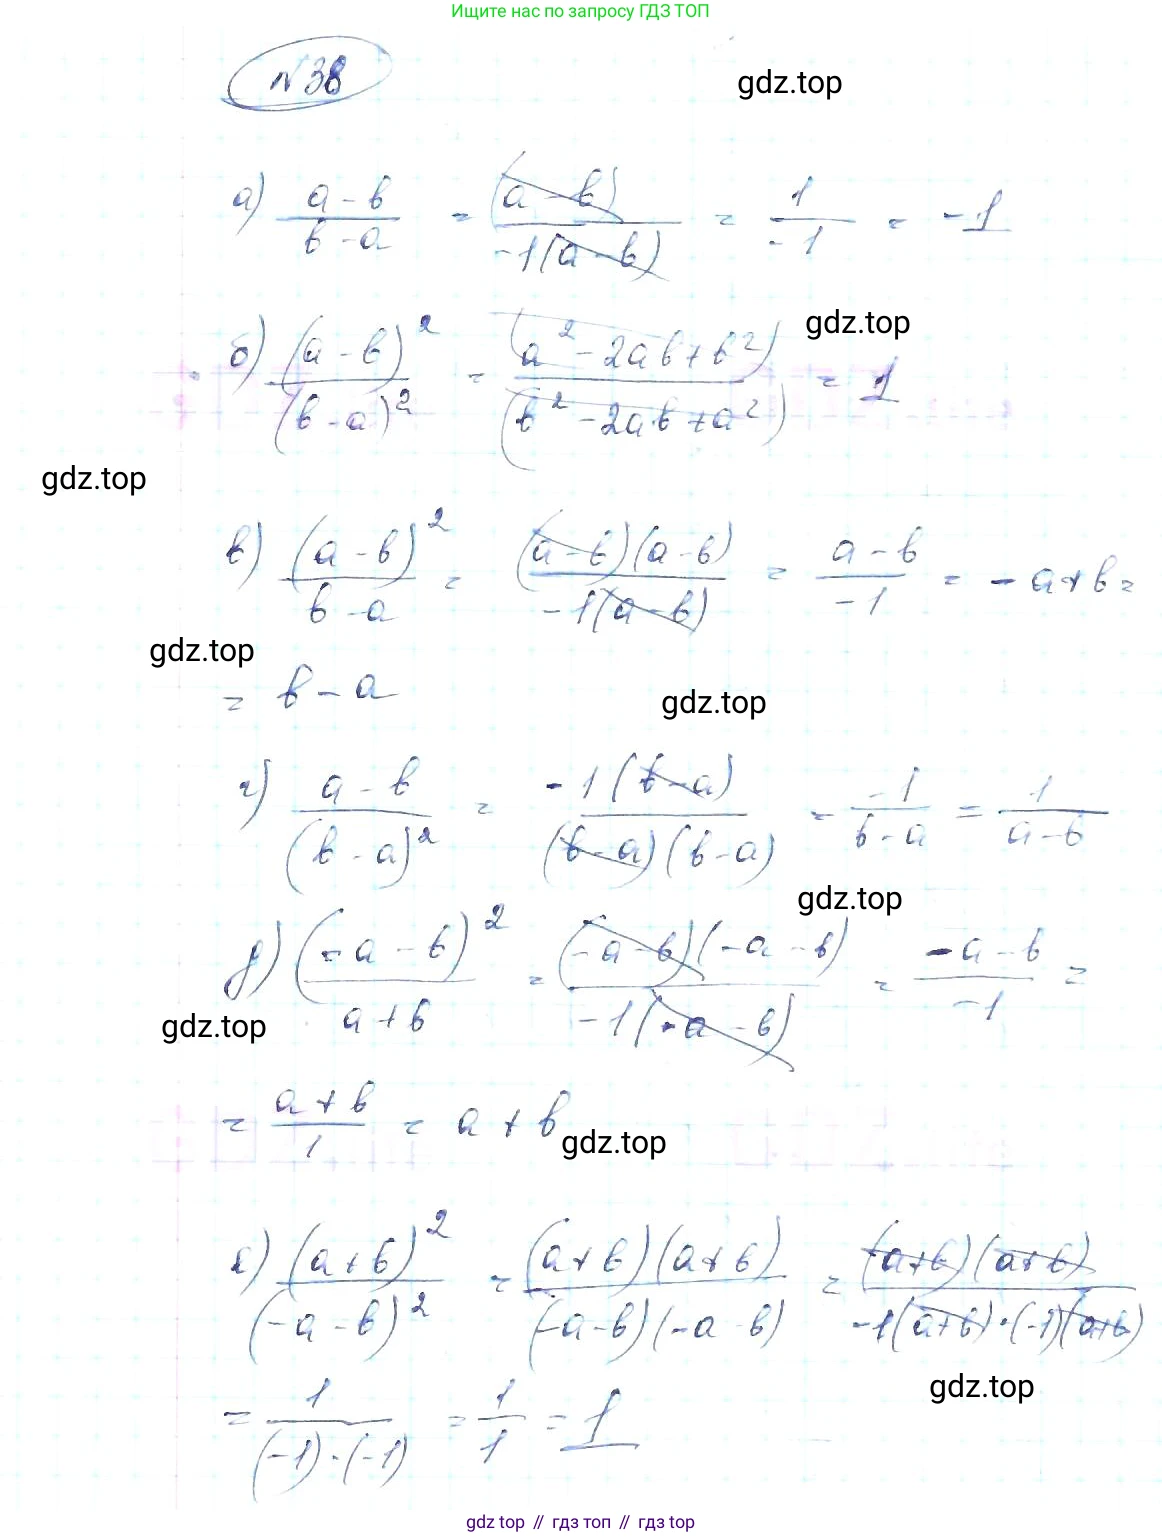 Ищите нас по запросу ГДЗ ТОП
N38
gdz.top
а) (a - b)/(b - a) = (a - b)/(-1(a - b)) = 1/(-1) = -1
gdz.top
б) (a - b)²/(b - a)² = (a² - 2ab + b²)/(b² - 2ab + a²) = 1
gdz.top
в) (a - b)²/(b - a) = (a - b)(a - b)/(-1(a - b)) = (a - b)/(-1) = - a + b =
gdz.top
= b - a
gdz.top
г) (a - b)/(b - a)² = -1(b - a)/((b - a)(b - a)) = -1/(b - a) = 1/(a - b)
gdz.top
д) (-a - b)²/(a + b) = (-a - b)(-a - b)/(-1(-a - b)) = (-a - b)/(-1) =
gdz.top
= (a + b)/1 = a + b
gdz.top
е) (a + b)²/(-a - b)² = (a + b)(a + b)/((-a - b)(-a - b)) = (a + b)(a + b)/(-1(a + b)·(-1)(a + b))
gdz.top
= 1/((-1)·(-1)) = 1/1 = 1
gdz top // гдз топ // гдз top